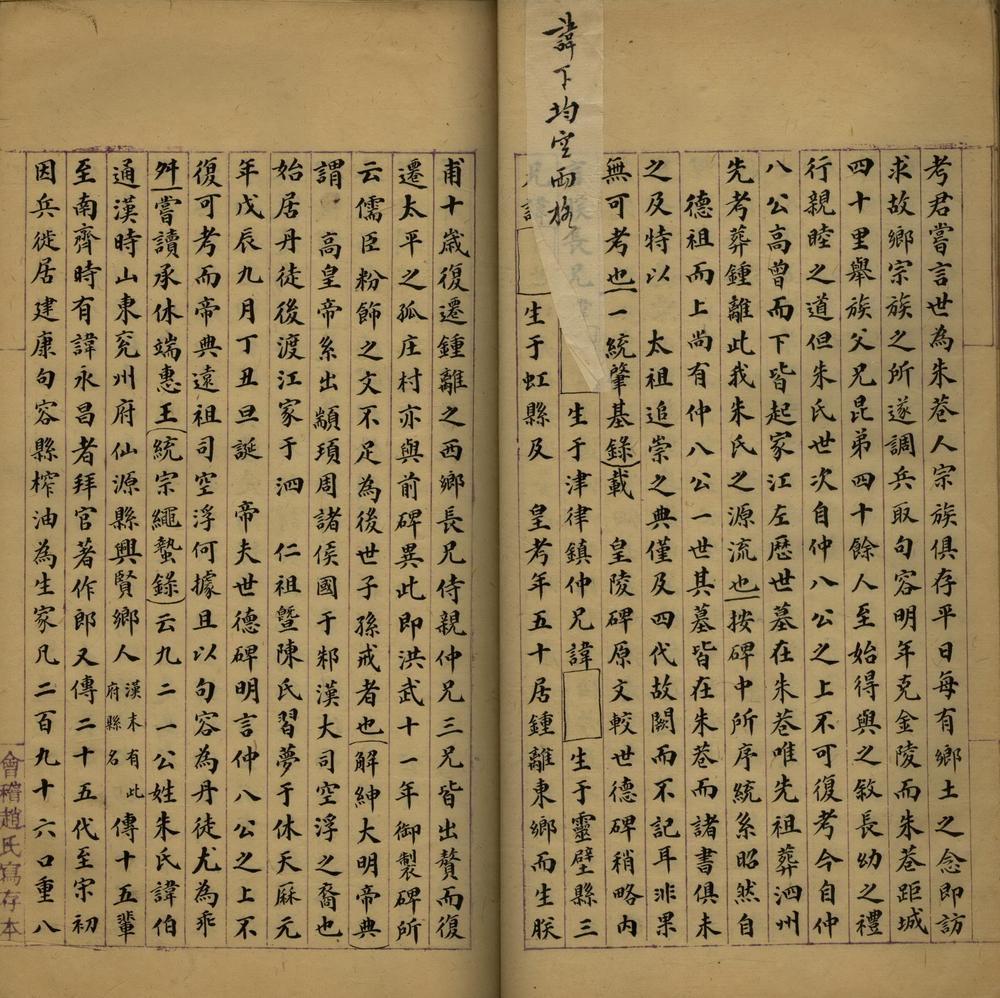 諱下均空兩格
考君嘗言世為朱巷人宗族俱存平日每有鄉土之念即訪
求故鄉宗族之所遂調兵取句容明年克金陵而朱巷距城
四十里舉族父兄昆弟四十餘人至始得與之敘長幼之禮
行親睦之道但朱氏世次自仲八公之上不可復考今自仲
八公高曾而下皆起家江左歷世墓在朱巷唯先祖葬泗州
先考葬鍾離此我朱氏之源流也按碑中所序統系昭然自
德祖而上尚有仲八公一世其墓皆在朱巷而諸書俱未
之及特以 太祖追崇之典僅及四代故闕而不記耳非果
無可考也一統肇基錄載 皇陵碑原文較世德碑稍略內
生于津律鎮仲兄諱 生于靈壁縣三
生于虹縣及 皇考年五十居鍾離東鄉而生朕
甫十歲復遷鍾離之西鄉長兄侍親仲兄三兄皆出贅而復
遷太平之孤庄村亦與前碑異此即洪武十一年御製碑所
云儒臣粉飾之文不足為後世子孫戒者也解紳大明帝典
謂 高皇帝系出顓頊周諸侯國于邾漢大司空浮之裔也
始居丹徒後渡江家于泗 仁祖曁陳氏習夢于休天厤元
年戊辰九月丁丑旦誕 帝夫世德碑明言仲八公之上不
復可考而帝典遠祖司空浮何據且以句容為丹徒尤為乖
舛嘗讀承休端惠王統宗繩蟄錄云九二一公姓朱氏諱伯
通漢時山東兖州府仙源縣興賢鄉人漢末有此府縣名傳十五輩
至南齊時有諱永昌者拜官著作郎又傳二十五代至宋初
因兵徙居建康句容縣榨油為生家凡二百九十六口重八
會稽趙氏寫存本